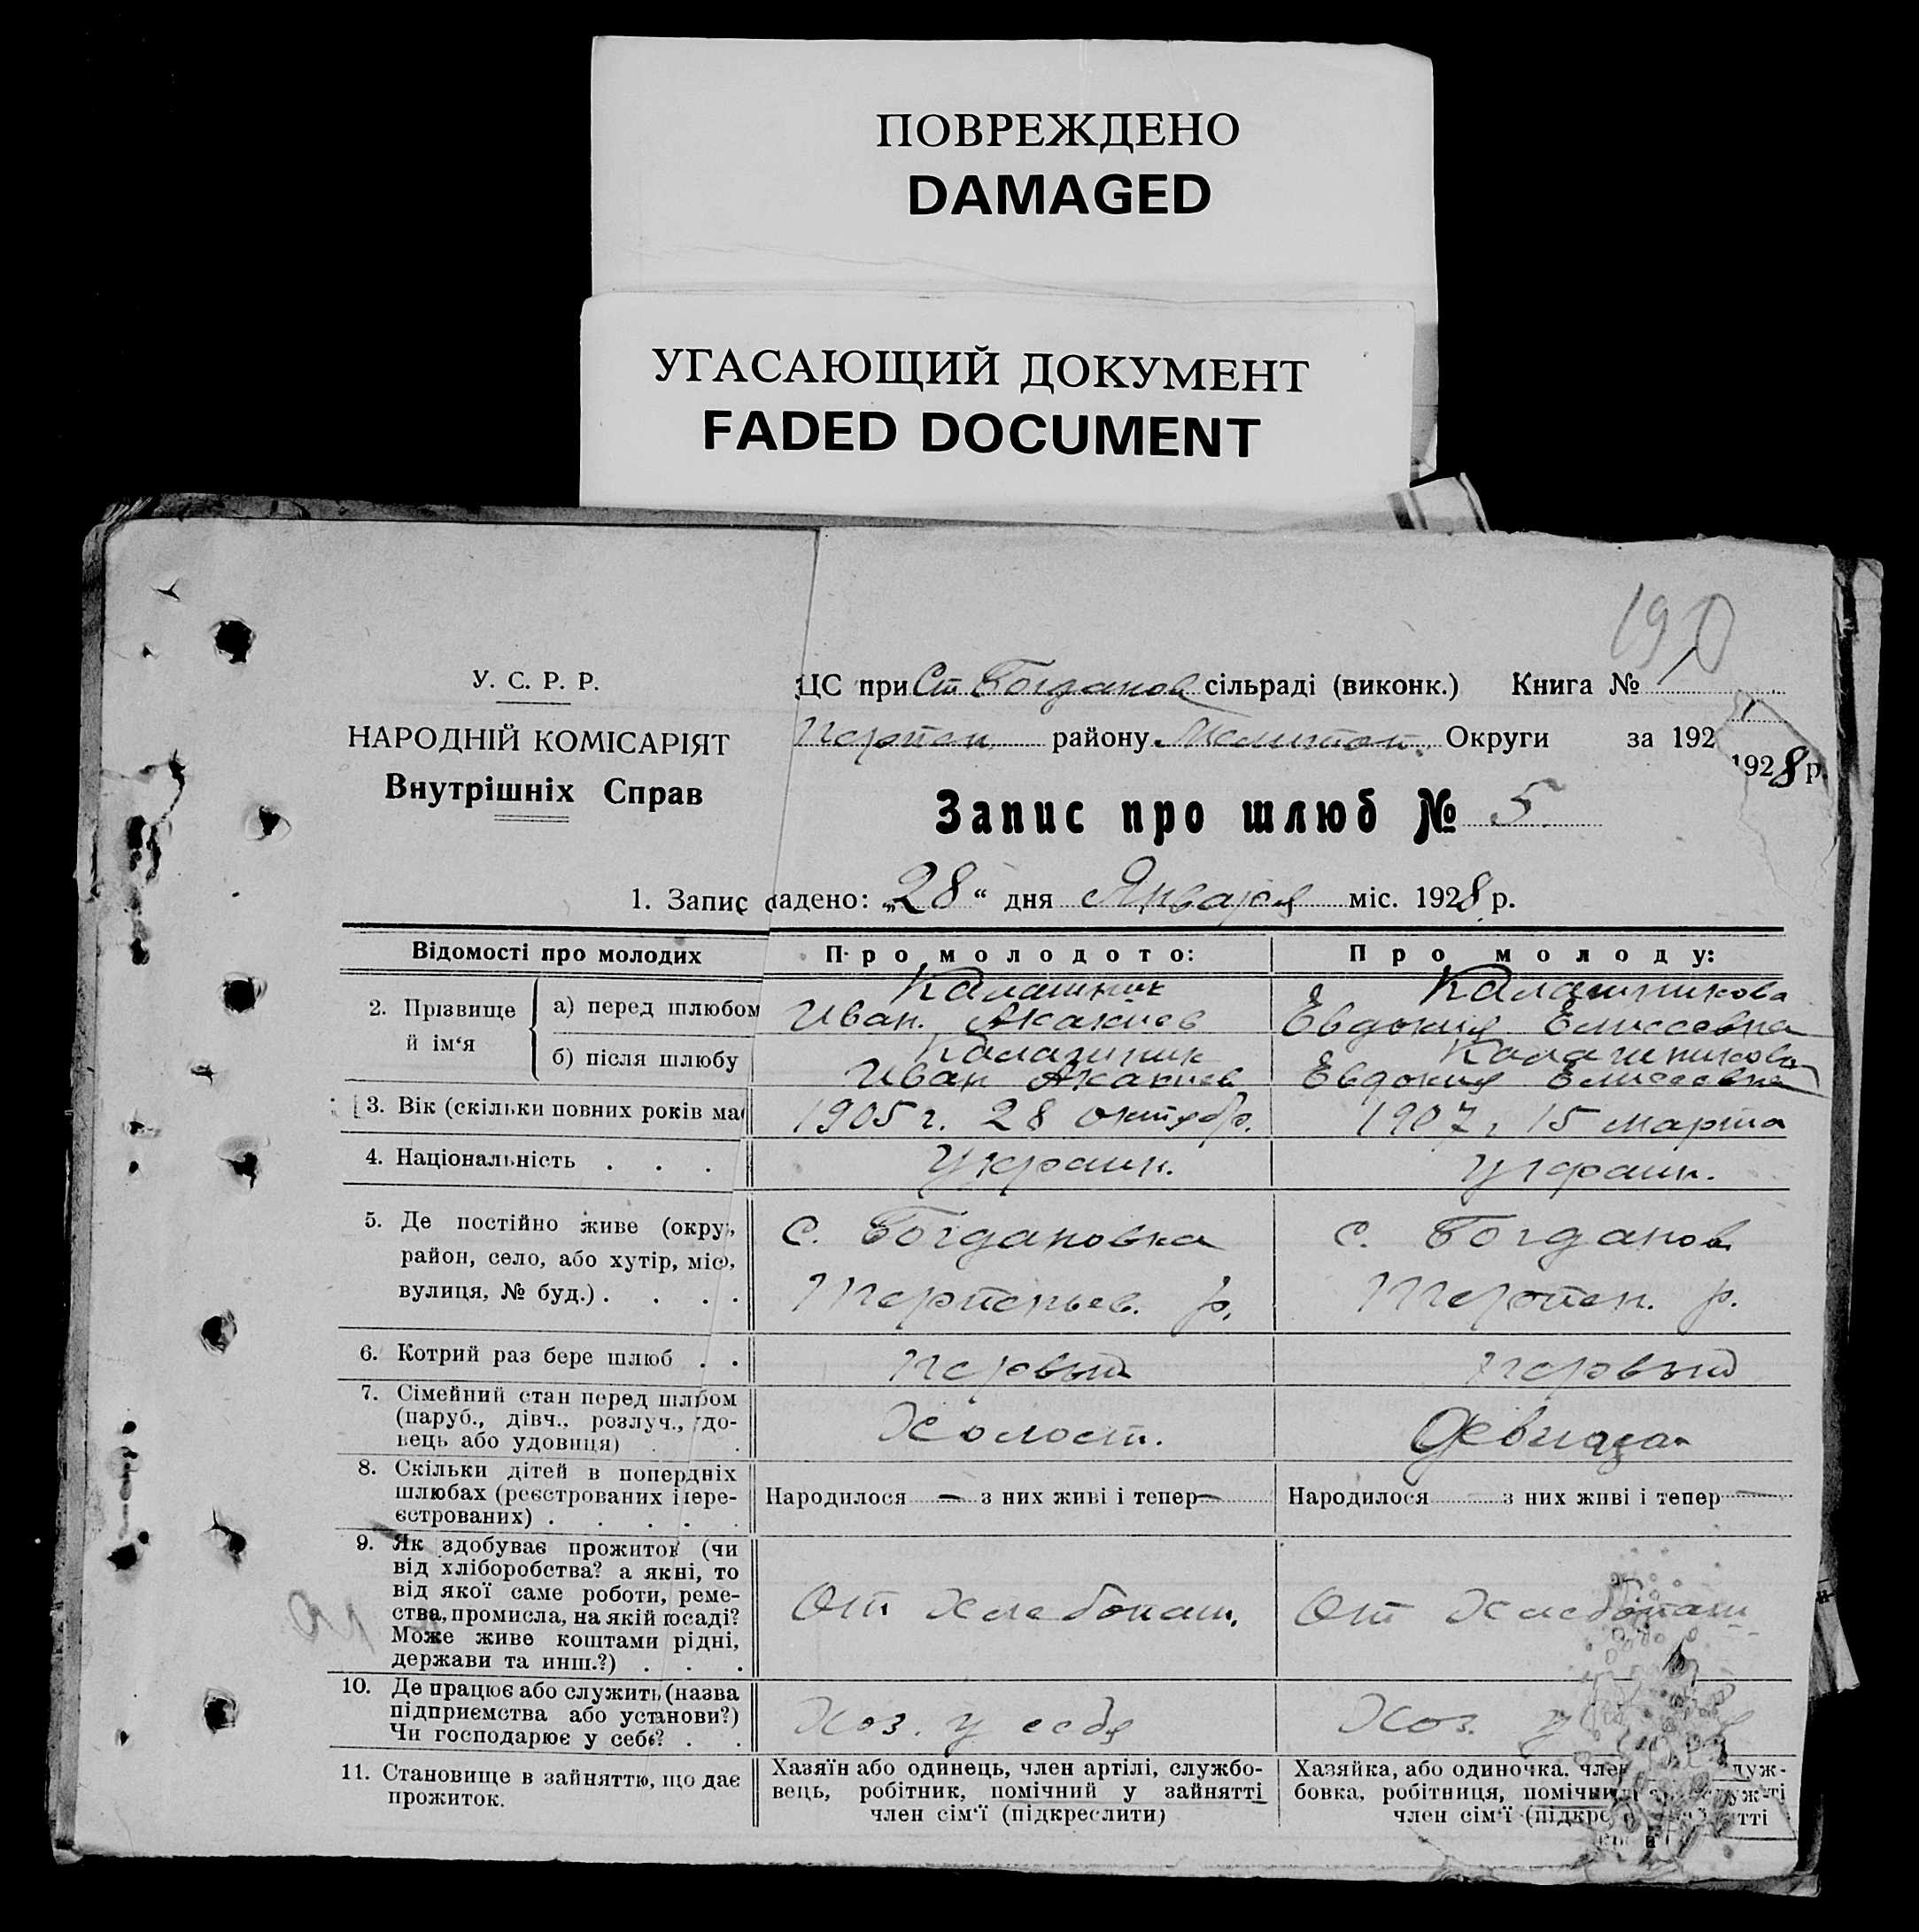 ПОВРЕЖДЕНО
DAMAGED
УГАСАЮЩИЙ ДОКУМЕНТ
FADED DOCUMENT
190
У. С. Р. Р.
НАРОДНІЙ КОМІСАРІЯТ
Внутрішніх Справ
ЦС при Ст Богданов сільраді (виконк.) Книга № 1
району Мелитоп. Округи за 192
1928 р.
Запис про шлюб № 5
1. Запис ладено: „28“ дня Января міс. 1928 р.
Відомості про молодих
Про молодого:
Про молоду:
2. Прізвище й ім‘я
а) перед шлюбом
Калашник
Иван. Акакиев
Калашникова
Евдокия Елисеевна
б) після шлюбу
Калашник
Иван Акакиев
Калашникова
Евдокия Елисеевна
3. Вік (скільки повних років ма
1905 г. 28 октябр.
1907 г. 15 марта
4. Національність . . .
Украин.
Украин.
5. Де постійно живе (окру,
район, село, або хутір, міс,
вулиця, № буд.) . . . .
с. Богдановка
Терпеньев. р.
с. Богданов
Терпен. р.
6. Котрий раз бере шлюб . .
первый
первый
7. Сімейний стан перед шлюбом
(паруб., дівч., розлуч., удо-
вець або удовиця) . .
Холост.
Девица
8. Скільки дітей в попердніх
шлюбах (реєстрованих і пере-
єстрованих) . . . . .
Народилося — з них живі і тепер —
Народилося з них живі і тепер —
9. Як здобуває прожиток (чи
від хліборобства? а якні, то
від якої саме роботи, реме-
ства, промисла, на якій посаді?
Може живе коштами рідні,
держави та инш.?) . . .
От хлебопаш.
От хлебопаш
10. Де працює або служить (назва
підприємства або установи?)
Чи господарює у себе? . .
Хоз. у себя
Хоз. у
11. Становище в зайняттю, що дає
прожиток.
Хазяїн або одинець, член артілі, службо-
вець, робітник, помічний у зайнятті
член сім‘ї (підкреслити)
Хазяйка, або одиночка. член
бовка, робітниця, помічниц
член сім‘ї (підкре